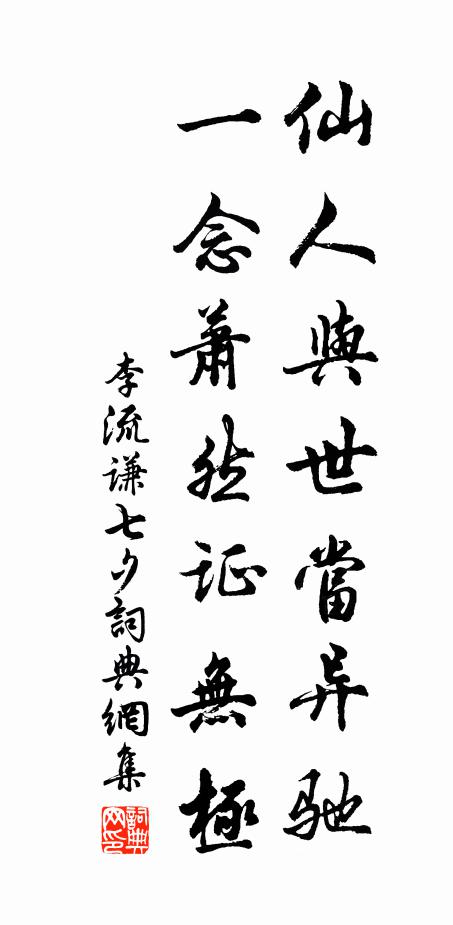 仙人與世當异馳
一念蕭然证無極
李流谦七夕詞典網集
詞典網印